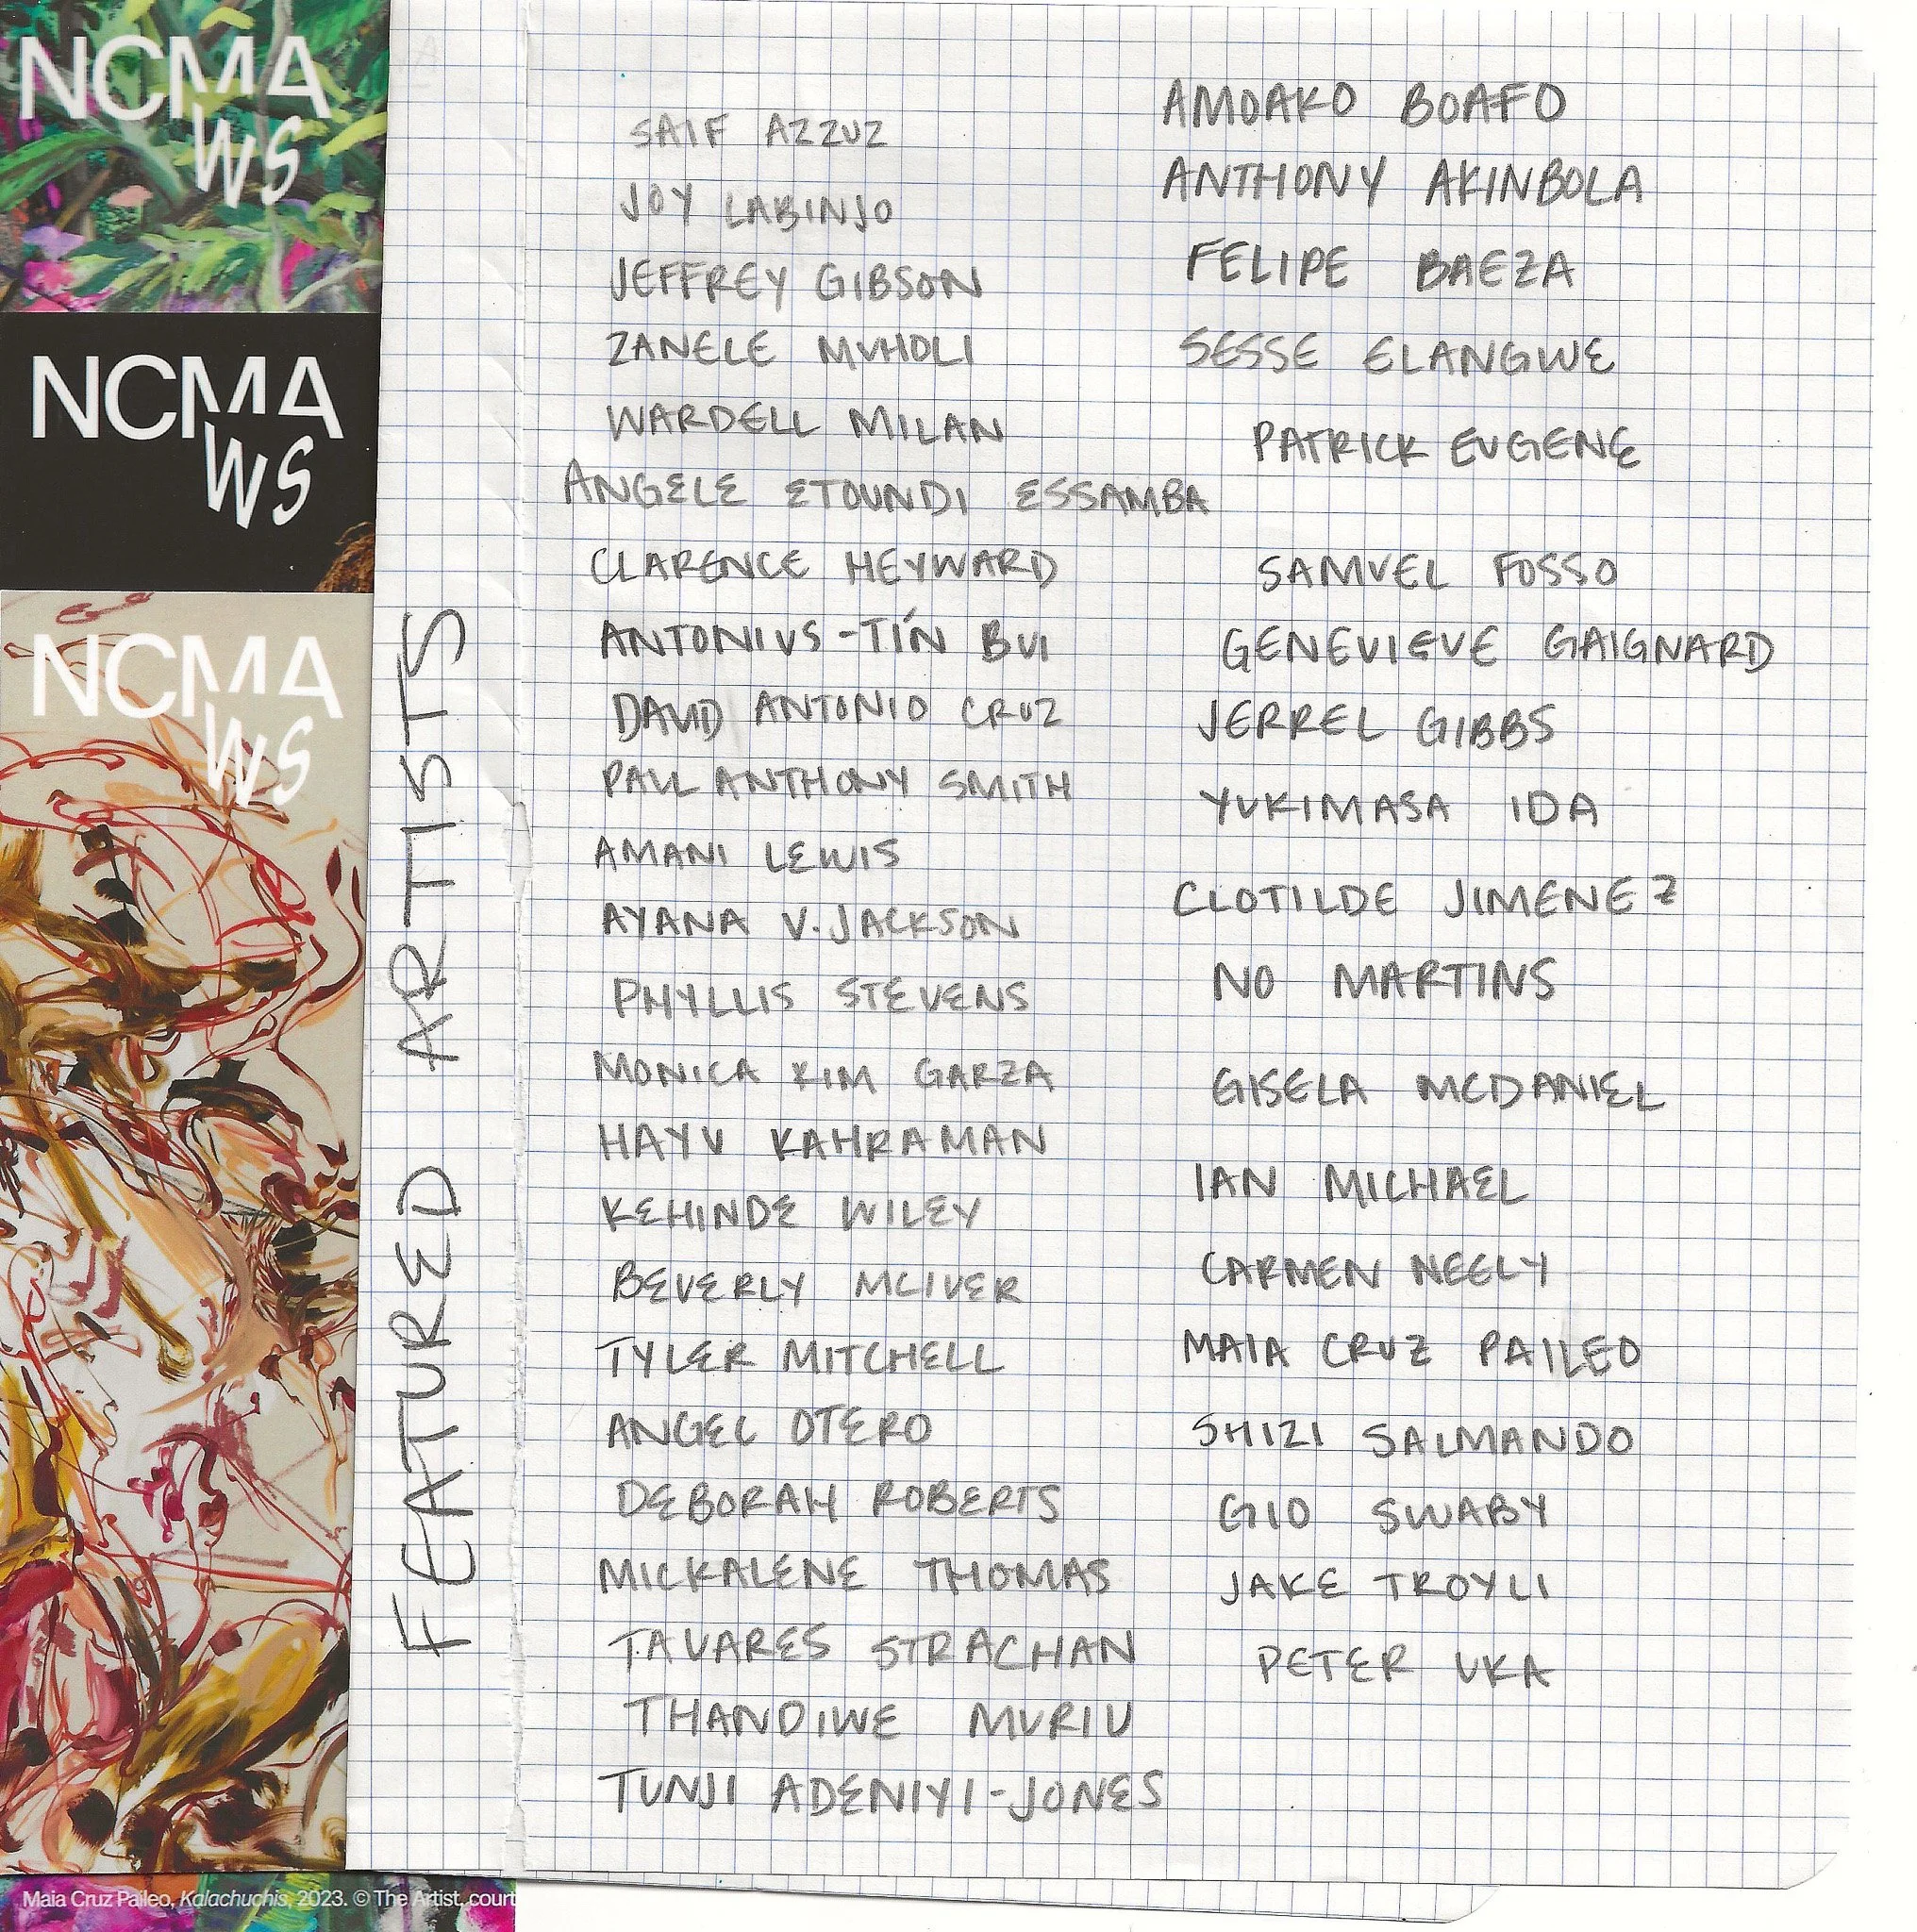 NCMA
WS
NCMA
WS
NCMA
WS
Maia Cruz Paileo, Kalachuchis, 2023. © The Artist, court
FEATURED ARTISTS
SAIF AZZUZ
JOY LABINJO
JEFFREY GIBSON
ZANELE MUHOLI
WARDELL MILAN
ANGELE ETOUNDI ESSAMBA
CLARENCE HEYWARD
ANTONIUS-TÍN BUI
DAVID ANTONIO CRUZ
PAUL ANTHONY SMITH
AMANI LEWIS
AYANA V. JACKSON
PHYLLIS STEVENS
MONICA KIM GARZA
HAYV KAHRAMAN
KEHINDE WILEY
BEVERLY MCIVER
TYLER MITCHELL
ANGEL OTERO
DEBORAH ROBERTS
MICKALENE THOMAS
TAVARES STRACHAN
THANDIWE MURIU
TUNJI ADENIYI-JONES
AMOAKO BOAFO
ANTHONY AKINBOLA
FELIPE BAEZA
SESSE ELANGWE
PATRICK EUGENE
SAMUEL FOSSO
GENEVIEVE GAIGNARD
JERREL GIBBS
YUKIMASA IDA
CLOTILDE JIMENEZ
NO MARTINS
GISELA MCDANIEL
IAN MICHAEL
CARMEN NEELY
MAIA CRUZ PAILEO
SHIZI SALMANDO
GIO SWABY
JAKE TROYLI
PETER UKA